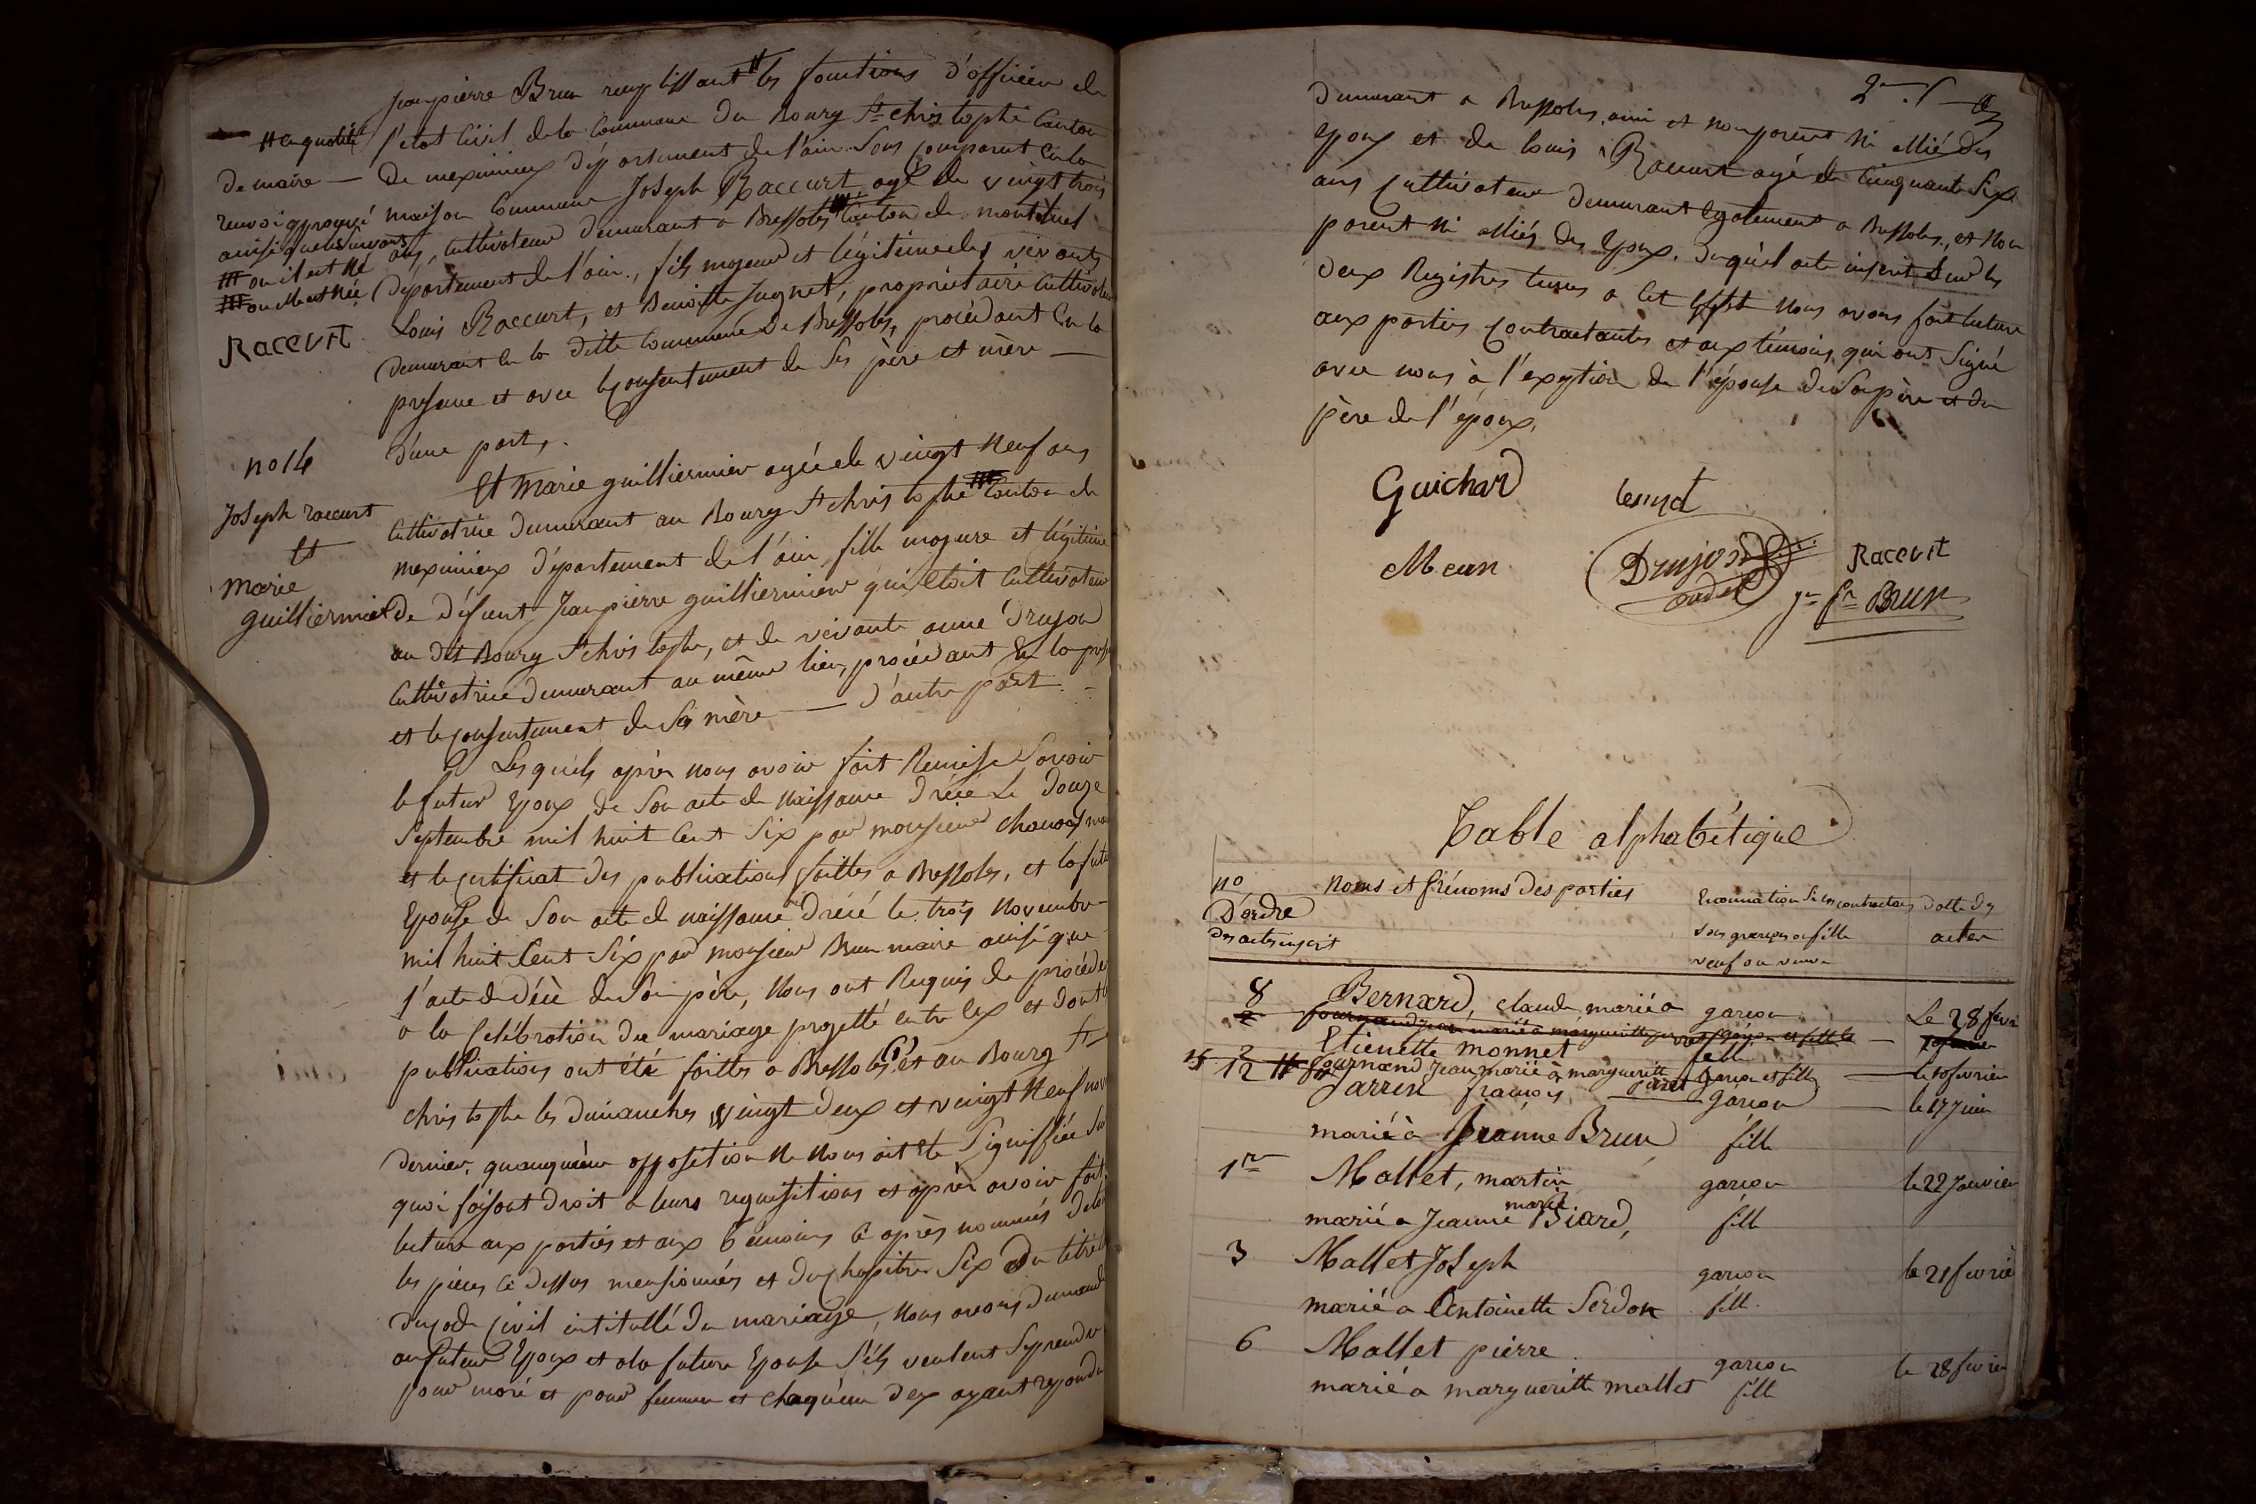 jeanpierre Brun remplissant # les fonctions d'officier de
l'etat Civil de la Commune du Bourg St christophe Canton
de meximieux département de l'ain. Sont comparut En la
maison Commune Joseph Raccurt agé de vingt trois
ans, cultivateur demeurant a Bressoles canton de montluel
département de l'ain, fils majeur et légitime des vivants
Louis Raccurt, et Benoitte Jugnet, propriétaire Cultivateur
demeurant En la ditte commune De Bressoles, procédant En la
presence et avec le consentement de Ses père et mère —
d'une part,.
# En qualité
de maire —
renvoi approuvé
ainsi que les suivants
## ou il est né
### ou elle est née
Raccurt
no 14
Joseph raccurt
Et
marie
guilliermier
Et marie guilliermier agée de vingt Neuf ans
Cultivatrice demeurant au Bourg St christophe ### Canton de
meximieux département de l'ain, fille majeure et légitime
de défunt Jeanpierre guilliermier qui Etoit Cultivateur
au dit Bourg St christophe, et de vivante anne Drujon
Cultivatrice demeurant au même lieu, procédant En la
et le consentement de Sa mère — d'autre part —
Les quels après nous avoir fait Remise Savoir
le futur Epoux de Son acte de Naissance drecé Le Douze
Septembre mil huit Cent Six par monsieur
et le certificat des publications faittes a Bressoles, et la future
Epouse de Son acte de naissance drecé le trois Novembre
mil huit Cent Six par monsieur Brun maire ainsi que
l'acte de décè de Son père, Nous ont Requis de procéder
a la Celébration du mariage projetté entre Eux et dont les
publications ont été faittes a Bressoles et au Bourg St
christophe les dimanches vingt deux et vingt Neuf
dernier, qu'aucune opposition Ne Nous ait eté Signiffiée Sur
quoi faisant droit a leurs requisitions et après avoir fait
lecture aux parties et aux témoins ci après nommés de
les pièces ci dessus mensionnées et du chapitre Six du titre
du code Civil intitullé du mariage, Nous avons demandé
au futur Epoux et a la future Epouse S'ils veulent Se prendre
pour mari et pour femme et chaqu'un d'eux ayant repondu
2me f
demeurant a Bressoles, ami et non parent Ni allié des
Epoux et de Louis Raccurt agé de Cinquante Six
ans cultivateur demeurant Egalement a Bressoles, et Non
parent Ni alliés des Epoux. Duquel acte inscrit Sur les
deux Registres tenus a Cet Effet Nous avons fait lecture
aux parties contractantes et aux témoins qui ont Signé
avec nous à l'exeption de l'épouse de Son père et du
père de l'époux.
Guichard
Meun
Drujon
cadet
Raccurt
Jn Pre Brun
Table alphabétique
no
D'ordre
des actes inscrit
Noms et prénoms Des parties
Sous garçon ou fille
veuf ou veuve
datte des
actes
8 Bernard, claude marié a garcon Le 28 fevri
Etienette monnet fille
2 fournand Jean marié à margueritte garcon et fille le 10 fevrier
12 Jarrin françois garcon le 17 Juin
marié à Jeanne Brun fille
1re Mallet, martin garcon le 22 Janvier
marié a Jeanne marie Biard, fille
3 Mallet Joseph garcon le 21 fevrie
marié a Antoinette Serdon fille.
6 Mallet pierre garcon le 28 fevrier
marié a margueritte mallet fille